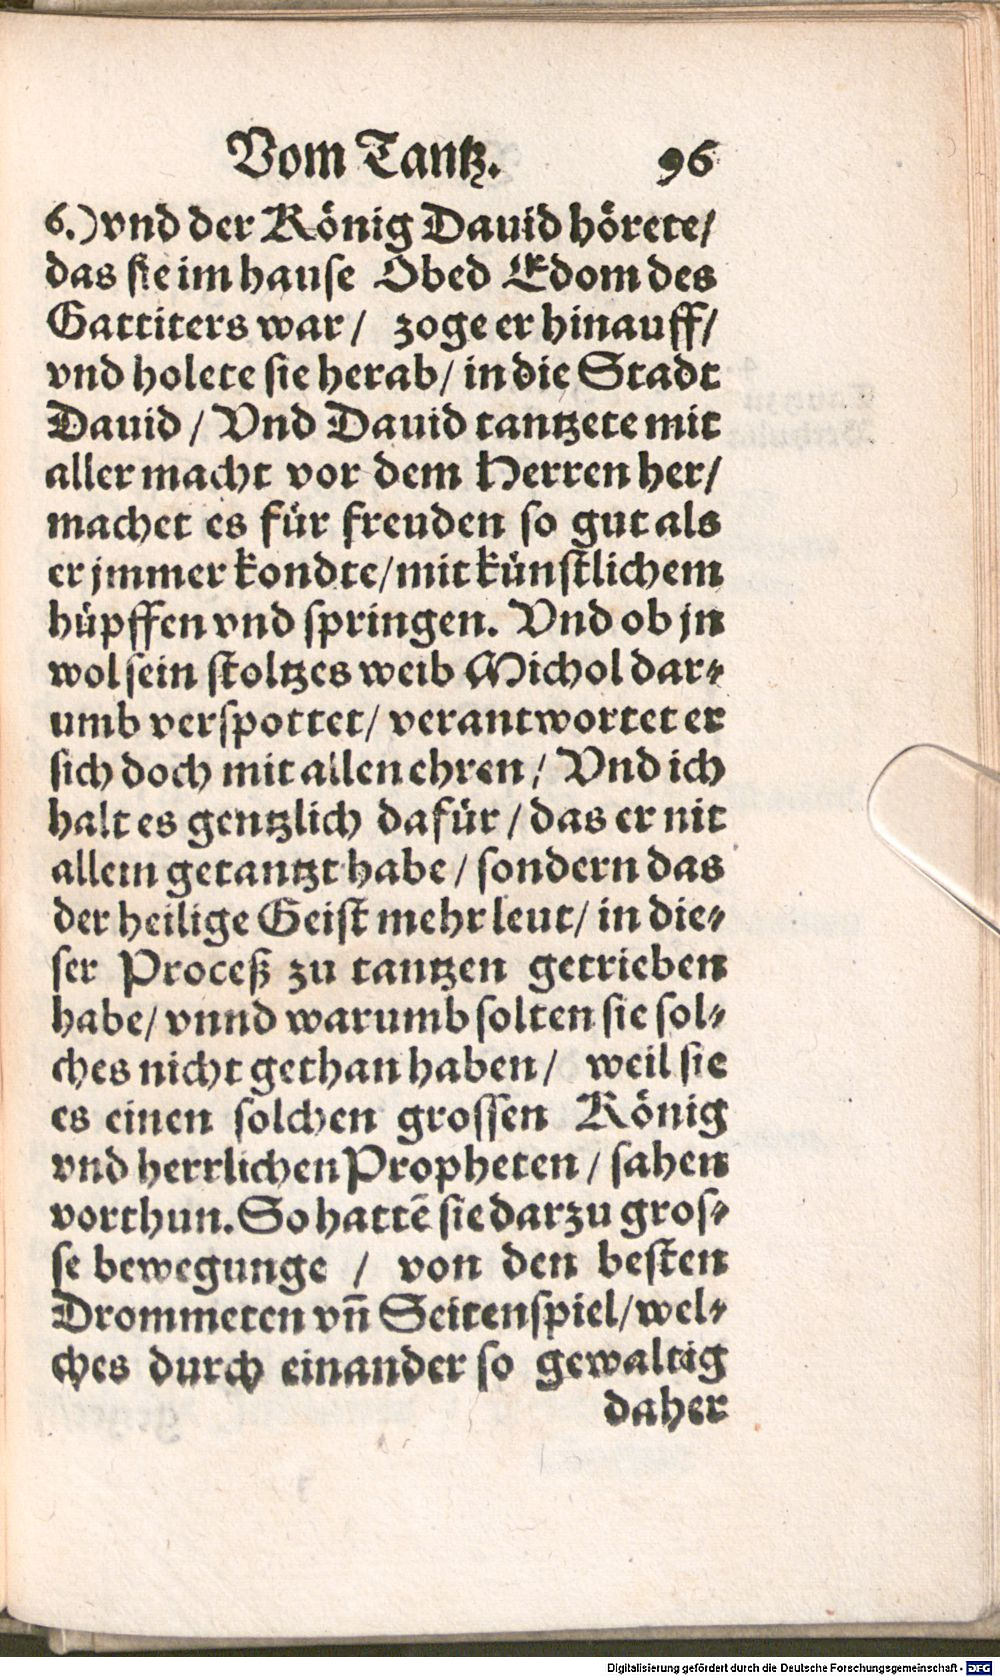 Vom Tantz. 96
6.) vnd der König Dauid hörete/
das sie im hause Obed Edom des
Gattiters war/ zoge er hinauff/
vnd holete sie herab/ in die Stadt
Dauid/ Vnd Dauid tantzete mit
aller macht vor dem Herren her/
machet es für freuden so gut als
er jmmer kondte/ mit künstlichem
hüpffen vnd springen. Vnd ob jn
wol sein stoltzes weib Michol dar⸗
umb verspottet/ verantwortet er
sich doch mit allen ehren/ Vnd ich
halt es gentzlich dafür/ das er nit
allein getantzt habe/ sondern das
der heilige Geist mehr leut/ in die⸗
ser Proceß zu tantzen getrieben
habe/ vnnd warumb solten sie sol⸗
ches nicht gethan haben/ weil sie
es einen solchen grossen König
vnd herrlichen Propheten/ sahen
vorthun. So hattē sie darzu gros⸗
se bewegunge / von den besten
Drommeten vn̄ Seitenspiel/ wel⸗
ches durch einander so gewaltig
daher
Digitalisierung gefördert durch die Deutsche Forschungsgemeinschaft - DFG